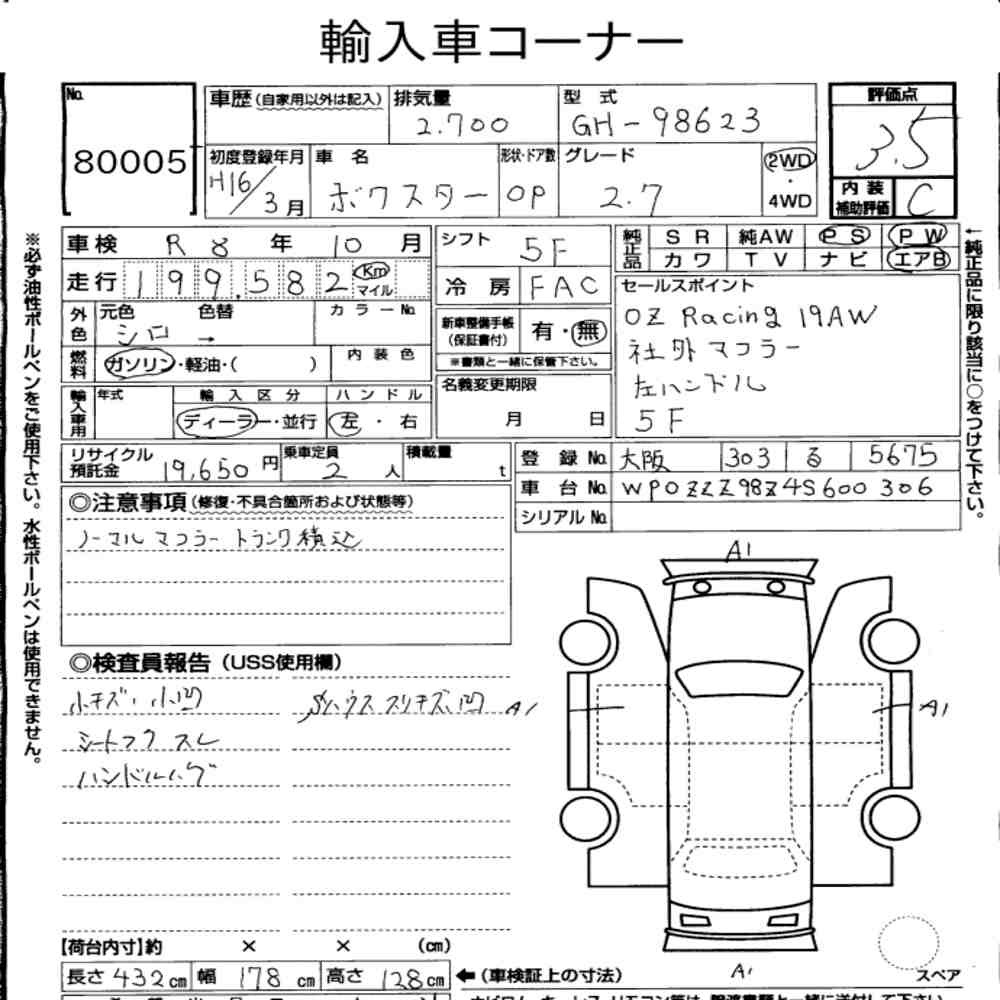 輸入車コーナー
No. 80005
車歴(自家用以外は記入) 排気量 2.700 型式 GH-98623
評価点 3.5
初度登録年月 H16/3月 車名 ボクスター 形状・ドア数 OP グレード 2.7 2WD・4WD
内装補助評価 C
車検 R8年10月 シフト 5F 純正品 SR 純AW PS PW
カワ TV ナビ エアB
走行 199,582 Km マイル 冷房 FAC
セールスポイント
OZ Racing 19AW
社外マフラー
左ハンドル
5F
外色 元色 シロ 色替 → カラーNo.
新車整備手帳(保証書付) 有・無
※書類と一緒に保管下さい。
燃料 ガソリン・軽油・( ) 内装色
名義変更期限 月 日
輸入車用 年式 輸入区分 ディーラー・並行 ハンドル 左・右
リサイクル預託金 19,650円 乗車定員 2人 積載量 t
登録No. 大阪 303 る 5675
車台No. WP0ZZZ98Z4S600306
シリアルNo.
◎注意事項(修復・不具合箇所および状態等)
ノーマルマフラートランク積込
◎検査員報告(USS使用欄)
小キズ・小凹
シートフク スレ
ハンドルハゲ
ハウス スリキズ凹
A1
A1
A1
A1
スペア
【荷台内寸】約 × × (cm)
長さ 432cm 幅 178cm 高さ 128cm ←(車検証上の寸法)
※必ず油性ボールペンをご使用下さい。水性ボールペンは使用できません。
←純正品に限り該当に○をつけて下さい。